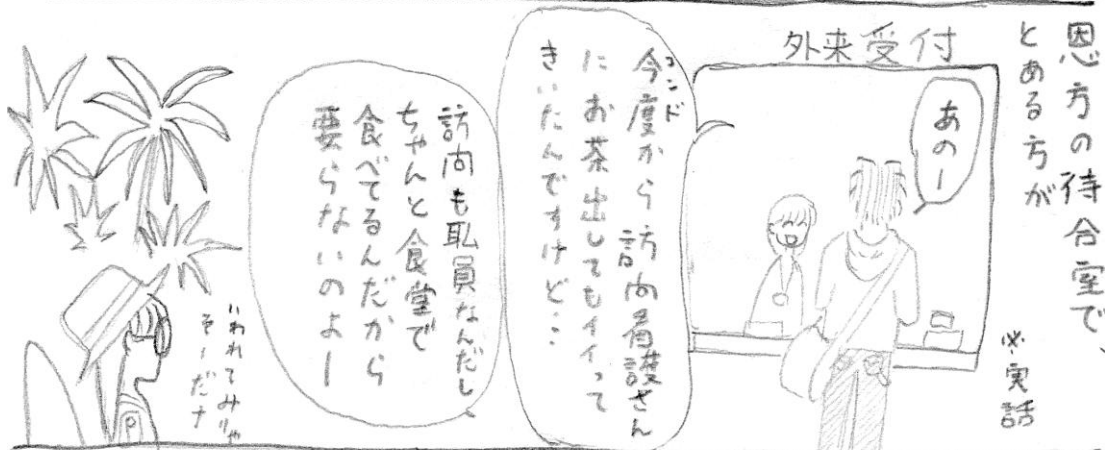 恩方の待合室で、
とある方が
※実話
外来受付
あのー
今度から訪問看護さん
コンド
にお茶出してもイイって
きいたんですけど・・
訪問も職員なんだし、
ちゃんと食堂で
食べてるんだから
要らないのよー
いわれてみりゃ
そーだナ